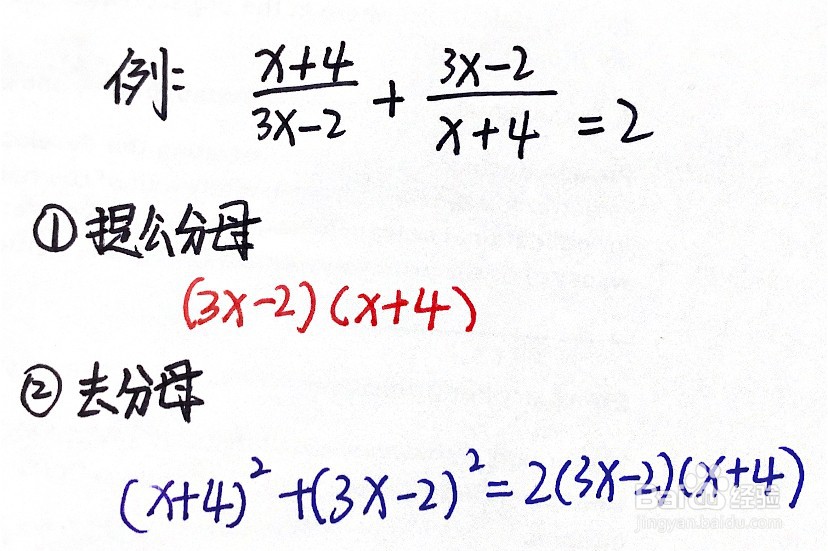 例: (x+4)/(3x-2) + (3x-2)/(x+4) = 2
①提公分母
(3x-2)(x+4)
②去分母
(x+4)²+(3x-2)²=2(3x-2)(x+4)
Baidu经验
jingyan.baidu.com